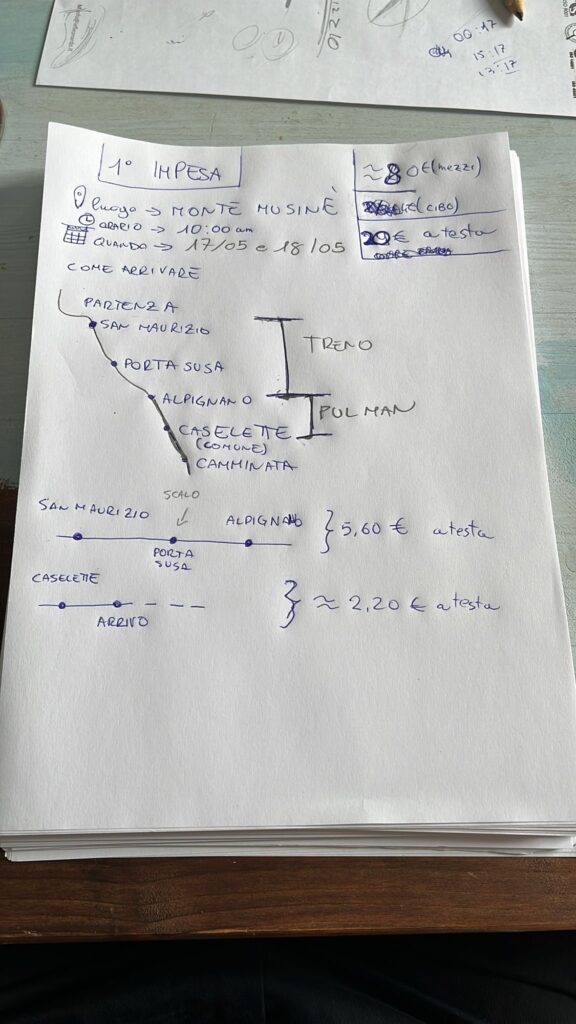 00:17
15:17
13:17
1° IMPESA
≈ 80€ (mezzi)
(CIBO)
20€ a testa
luogo → MONTE MUSINÈ
ORARIO → 10:00 am
QUANDO → 17/05 e 18/05
COME ARRIVARE
PARTENZA
SAN MAURIZIO
PORTA SUSA
ALPIGNANO
CASELETTE
(COMUNE)
CAMMINATA
TRENO
PULMAN
SCALO
SAN MAURIZIO
ALPIGNANO
PORTA
SUSA
} 5,60 € a testa
CASELETTE
ARRIVO
} ≈ 2,20 € a testa